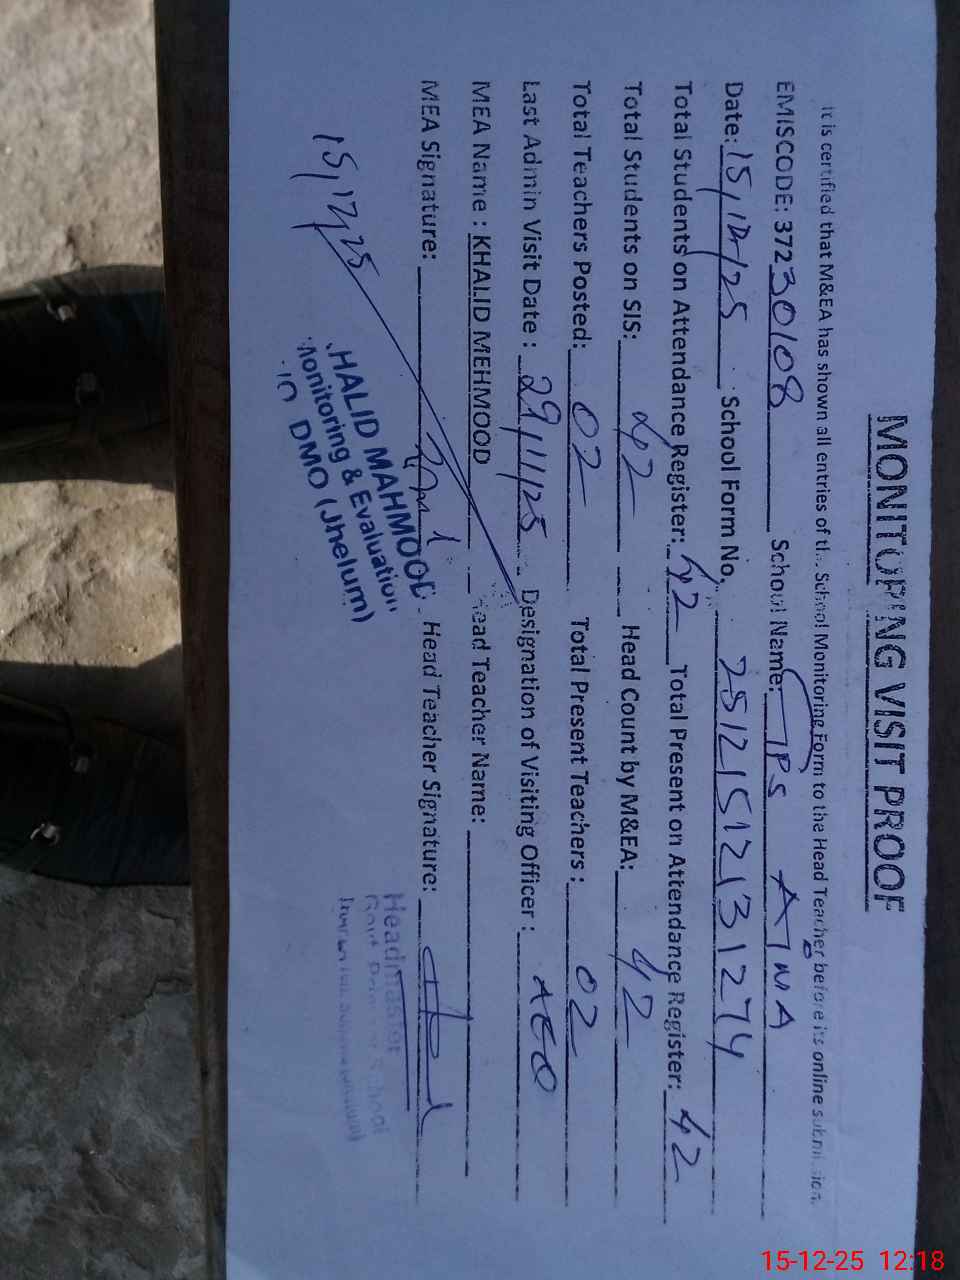 MONITORING VISIT PROOF
It is certified that M&EA has shown all entries of the School Monitoring Form to the Head Teacher before its online submission.
EMISCODE: 37230108 School Name: GPS AIMA
Date: 15/12/25 School Form No. 25121512131274
Total Students on Attendance Register: 42 Total Present on Attendance Register: 42
Total Students on SIS: 42 Head Count by M&EA: 42
Total Teachers Posted: 02 Total Present Teachers: 02
Last Admin Visit Date: 29/11/25 Designation of Visiting Officer: AEO
MEA Name: KHALID MEHMOOD Head Teacher Name:
MEA Signature: Head Teacher Signature:
15/12/25
HALID MAHMOOD
Monitoring & Evaluation
DMO (Jhelum)
Headmaster
School
15-12-25 12:18